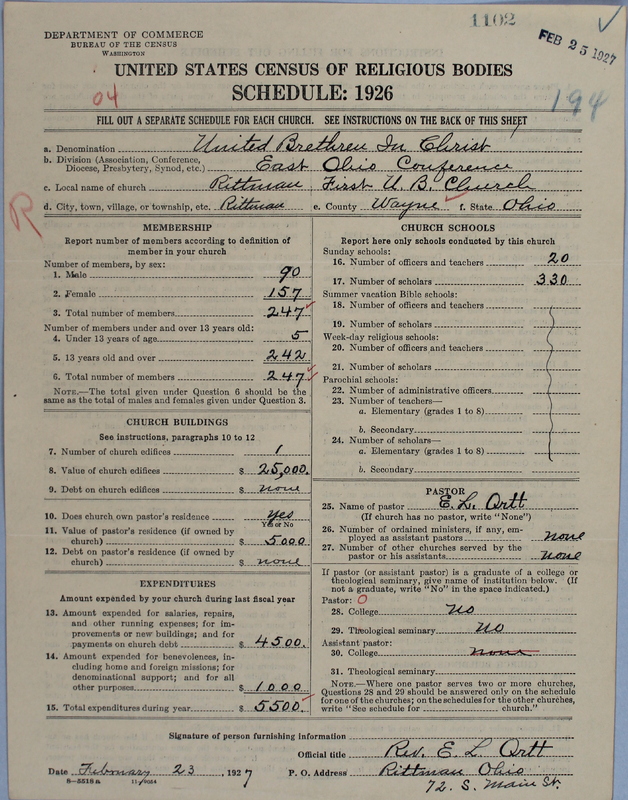 1102
FEB 25 1927
DEPARTMENT OF COMMERCE
BUREAU OF THE CENSUS
WASHINGTON
UNITED STATES CENSUS OF RELIGIOUS BODIES
SCHEDULE: 1926
04
194
FILL OUT A SEPARATE SCHEDULE FOR EACH CHURCH. SEE INSTRUCTIONS ON THE BACK OF THIS SHEET
a. Denomination United Brethren In Christ
b. Division (Association, Conference,
Diocese, Presbytery, Synod, etc.) East Ohio Conference
c. Local name of church Rittman First U. B. Church
d. City, town, village, or township, etc. Rittman e. County Wayne f. State Ohio
R
MEMBERSHIP
Report number of members according to definition of
member in your church
Number of members, by sex:
1. Male 90
2. Female 157
3. Total number of members 247
Number of members under and over 13 years old:
4. Under 13 years of age 5
5. 13 years old and over 242
6. Total number of members 247
NOTE.—The total given under Question 6 should be
same as the total of males and females given under Question 3.
CHURCH BUILDINGS
See instructions, paragraphs 10 to 12
7. Number of church edifices 1
8. Value of church edifices $ 25,000.
9. Debt on church edifices $ none
10. Does church own pastor's residence yes
Yes or No
11. Value of pastor's residence (if owned by
church) $ 5000
12. Debt on pastor's residence (if owned by
church) $ none
EXPENDITURES
Amount expended by your church during last fiscal year
13. Amount expended for salaries, repairs,
and other running expenses; for im-
provements or new buildings; and for
payments on church debt $ 4500.
14. Amount expended for benevolences, in-
cluding home and foreign missions; for
denominational support; and for all
other purposes $ 1000
15. Total expenditures during year $ 5500.
CHURCH SCHOOLS
Report here only schools conducted by this church
Sunday schools:
16. Number of officers and teachers 20
17. Number of scholars 330
Summer vacation Bible schools:
18. Number of officers and teachers
19. Number of scholars
Week-day religious schools:
20. Number of officers and teachers
21. Number of scholars
Parochial schools:
22. Number of administrative officers
23. Number of teachers—
a. Elementary (grades 1 to 8)
b. Secondary
24. Number of scholars—
a. Elementary (grades 1 to 8)
b. Secondary
PASTOR
25. Name of pastor E. L. Ortt
(If church has no pastor, write "None")
26. Number of ordained ministers, if any, em-
ployed as assistant pastors none
27. Number of other churches served by the
pastor or his assistants none
If pastor (or assistant pastor) is a graduate of a college or
theological seminary, give name of institution below. (If
not a graduate, write "No" in the space indicated.)
Pastor: 0
28. College no
29. Theological seminary No
Assistant pastor:
30. College none
31. Theological seminary
NOTE.—Where one pastor serves two or more churches,
Questions 28 and 29 should be answered only on the schedule
for one of the churches; on the schedules for the other churches,
write "See schedule for church."
Signature of person furnishing information
Official title Rev. E. L. Ortt
Date February 23, 1927 P. O. Address Rittman Ohio
8—5518a 11—9054
72. S. Main St.